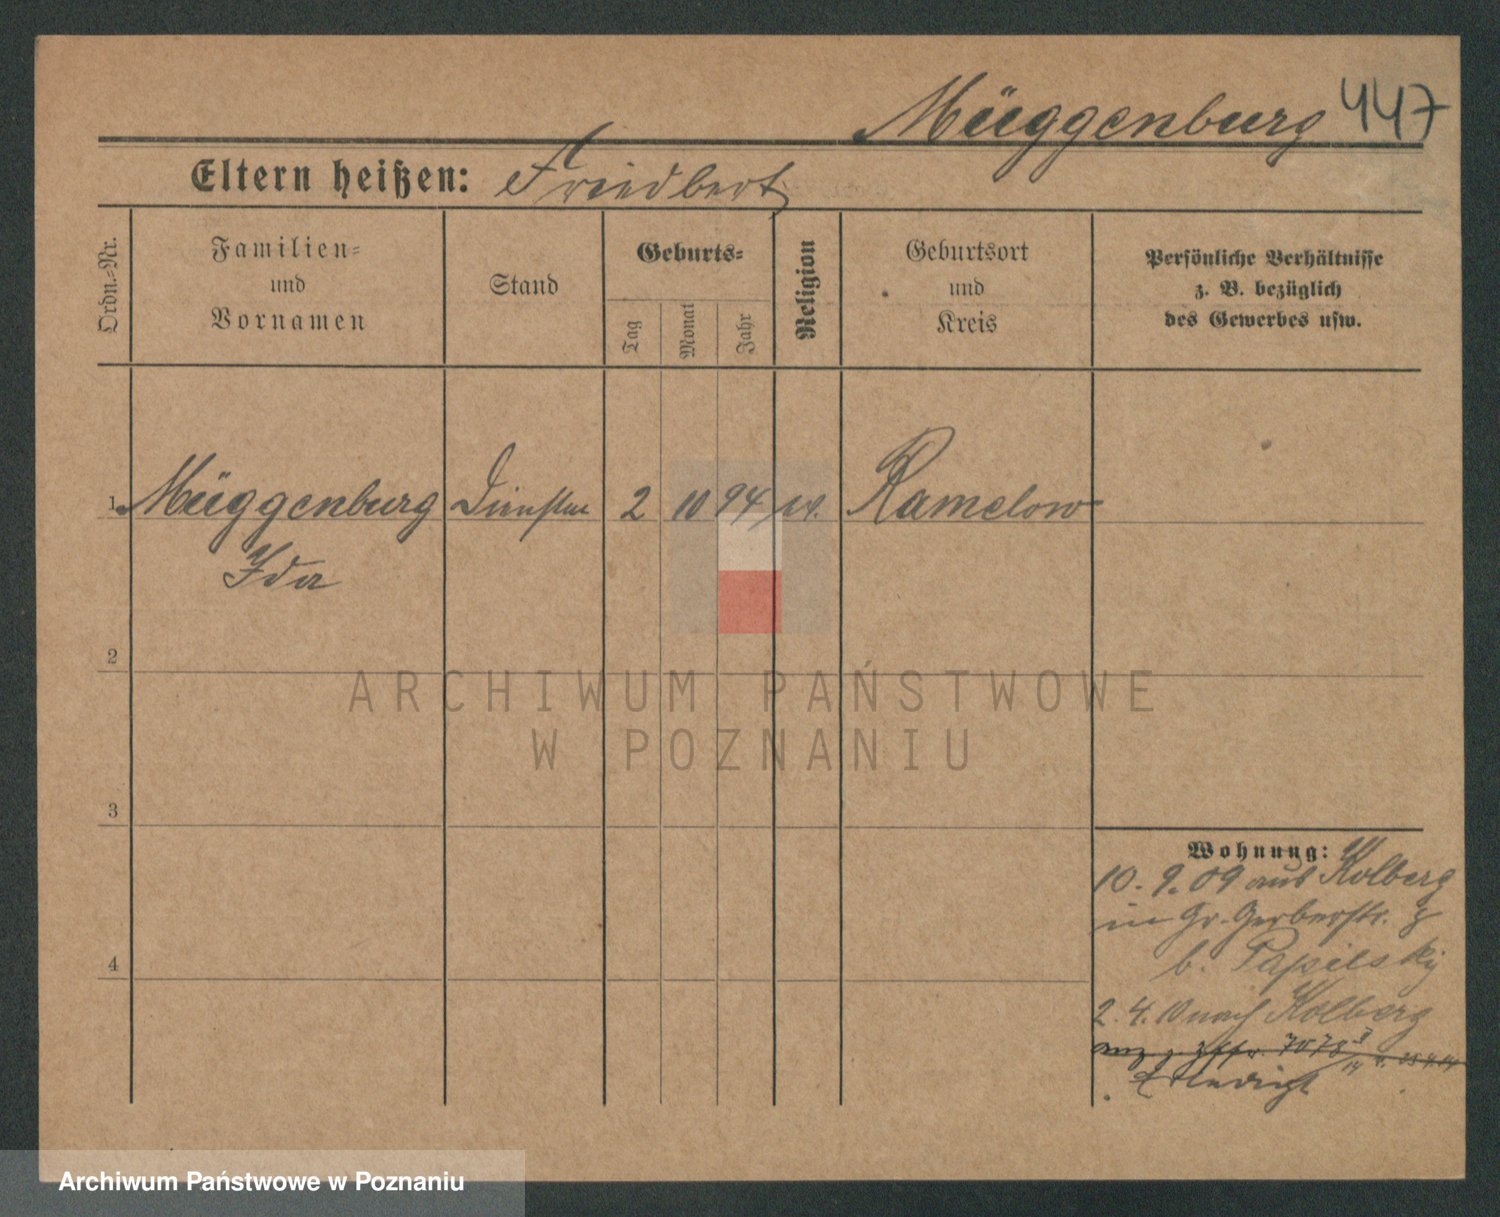 Müggenburg 447
Eltern heißen: Friedbert
Ordn.=Nr.
Familien=
und
Vornamen
Stand
Geburts=
Tag
Monat
Jahr
Religion
Geburtsort
und
Kreis
Persönliche Verhältnisse
z. B. bezüglich
des Gewerbes usw.
1 Müggenburg 2 10 94 ev. Ramelow
Ida
2
ARCHIWUM PAŃSTWOWE
W POZNANIU
3
Wohnung:
10. 9. 09 aus Kolberg
in Gr. Gerberstr.
b. Papilsky
4
2. 4. 10 nach Kolberg
Erledigt
Archiwum Państwowe w Poznaniu